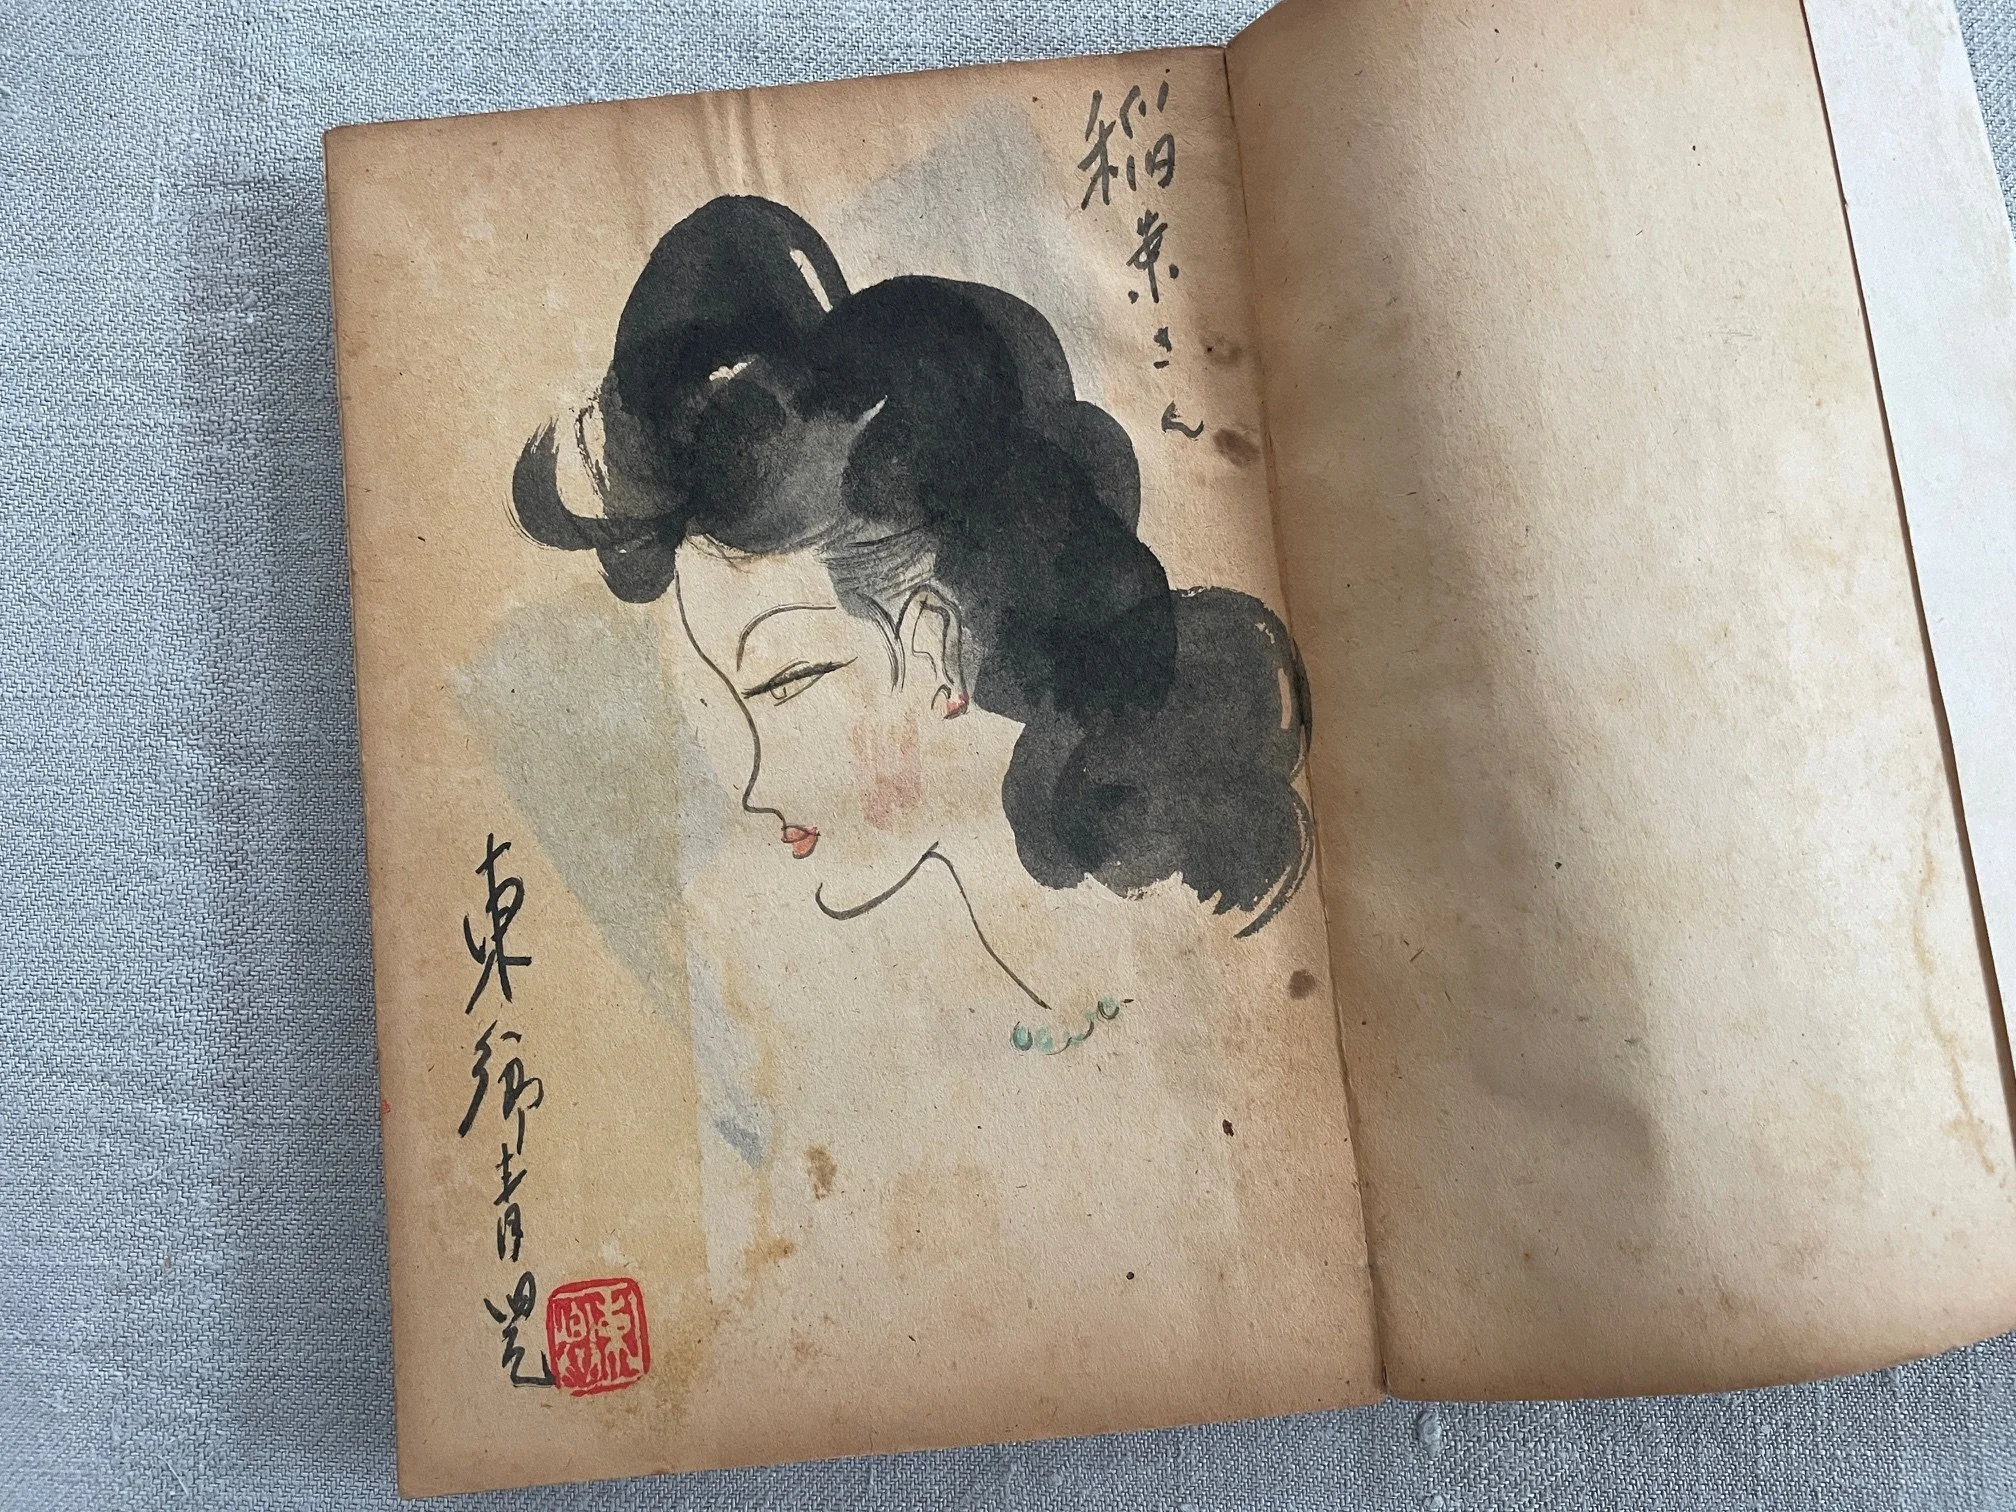 稲葉さん
東郷青児